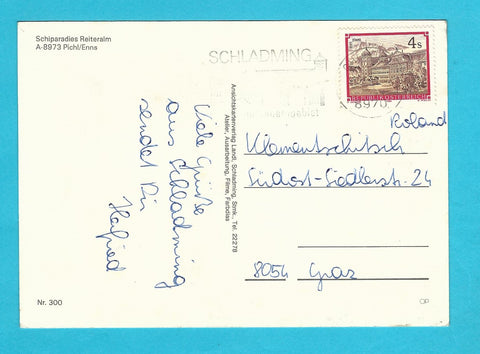 Schiparadies Reiteralm
A-8973 Pichl/Enns
SCHLADMING
4s
REPUBLIK ÖSTERREICH
8970
Viele Grüße
aus Schladming
sendet Dir
Ansichtskartenverlag Landl, Schladming, Stmk., Tel. 22278
Atelier, Ausarbeitung, Filme, Farbdias
Roland
Klementschitsch
Südost-Siedlerstr. 24
8054 Graz
Nr. 300